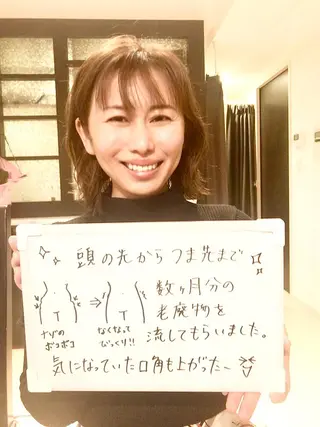 頭の先からつま先まで
数ヶ月分の
老廃物を
流してもらいました。
ナゾの
ボコボコ
⇒
なくなって
びっくり!!
気になっていた口角も上がった〜